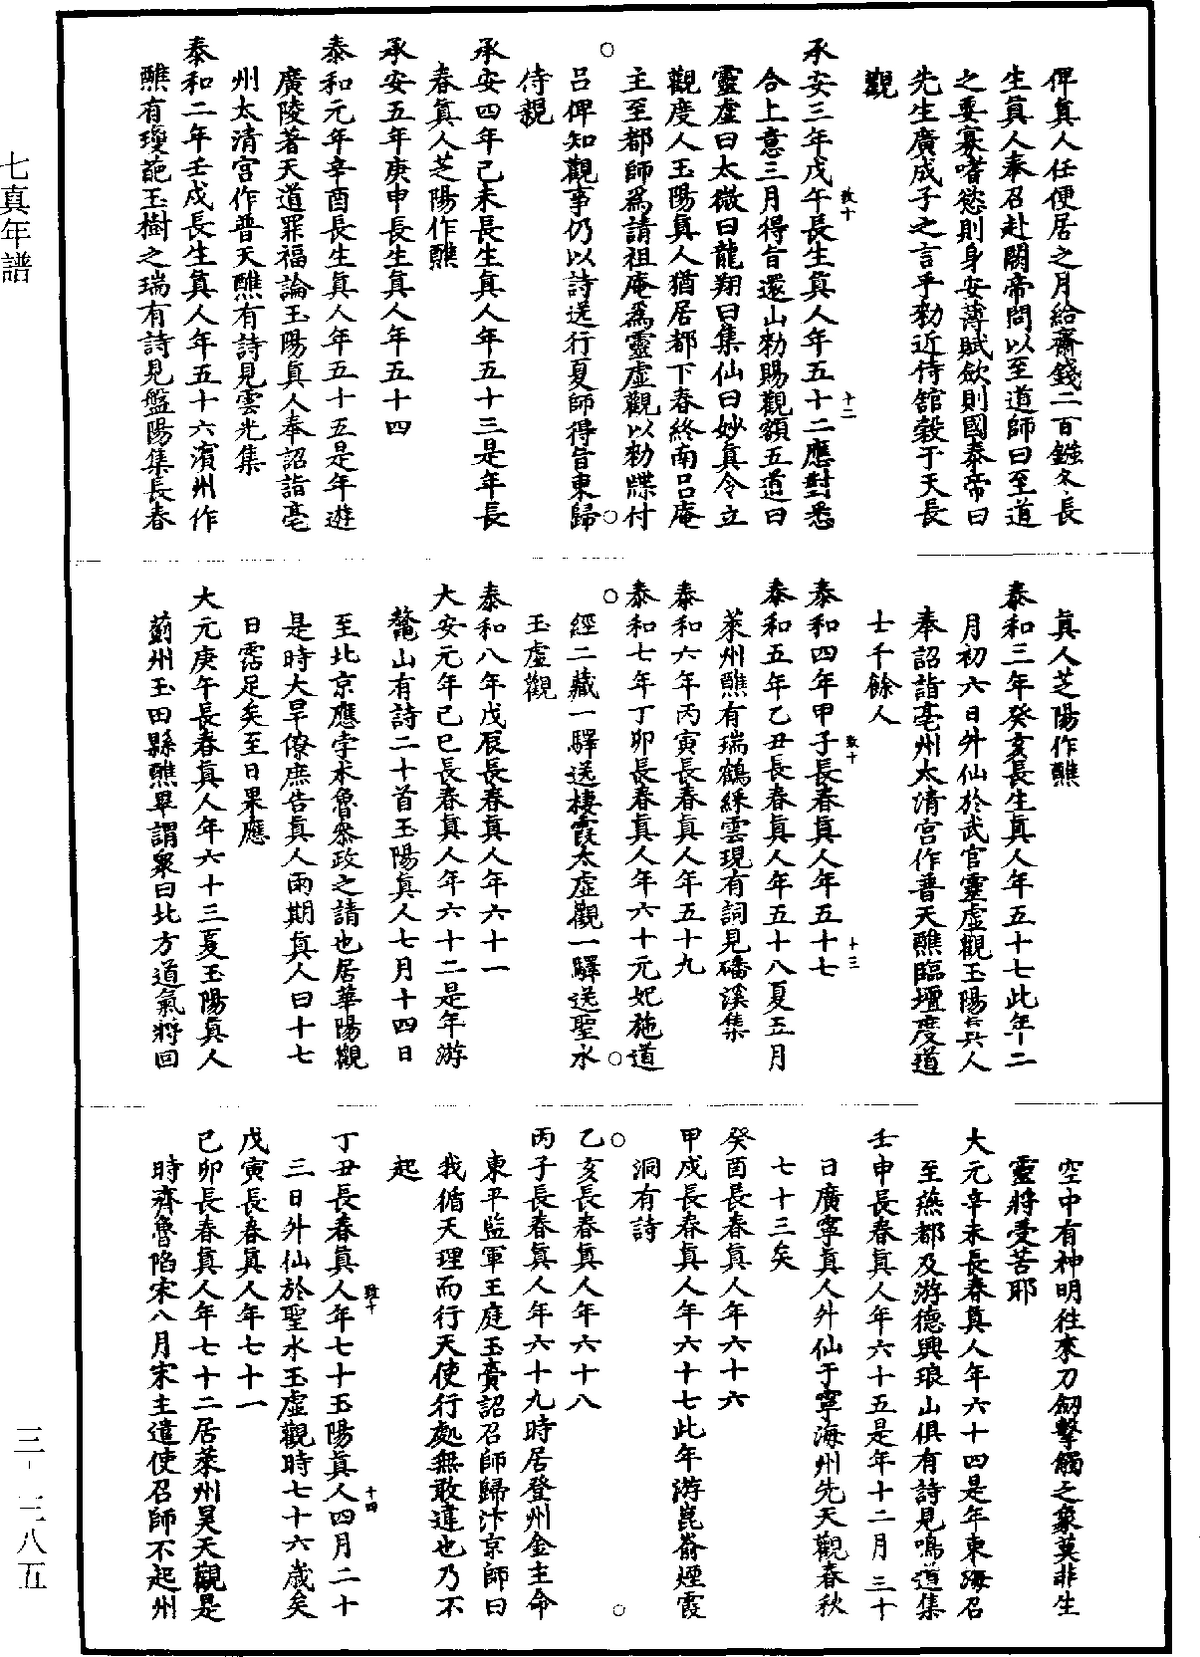 七真年譜
俾真人任便居之月給齋錢二百鏹冬長
生真人奉召赴闕帝問以至道師曰至道
之要寡嗜慾則身安薄賦歛則國泰帝曰
先生廣成子之言乎勑近侍舘穀于天長
觀
承安三年戊午長生真人年五十二應對悉
合上意三月得旨還山勑賜觀額五道曰
靈虛曰太微曰龍翔曰集仙曰妙真令立
觀度人玉陽真人猶居都下春終南呂庵
主至都師爲請祖庵爲靈虛觀以勑牒付
呂俾知觀事仍以詩送行夏師得旨東歸
侍親
承安四年己未長生真人年五十三是年長
春真人芝陽作醮
承安五年庚申長生真人年五十四
泰和元年辛酉長生真人年五十五是年遊
廣陵著天道罪福論玉陽真人奉詔詣亳
州太清宮作普天醮有詩見雲光集
泰和二年壬戌長生真人年五十六濱州作
醮有瓊葩玉樹之瑞有詩見盤陽集長春
真人芝陽作醮
泰和三年癸亥長生真人年五十七此年二
月初六日升仙於武官靈虛觀玉陽真人
奉詔詣亳州太清宮作普天醮臨壇度道
士千餘人
泰和四年甲子長春真人年五十七
泰和五年乙丑長春真人年五十八夏五月
萊州醮有瑞鶴綵雲現有詞見磻溪集
泰和六年丙寅長春真人年五十九
泰和七年丁卯長春真人年六十元妃施道
經二藏一驛送棲霞太虛觀一驛送聖水
玉虛觀
泰和八年戊辰長春真人年六十一
大安元年己巳長春真人年六十二是年游
鰲山有詩二十首玉陽真人七月十四日
至北京應孛术魯參政之請也居華陽觀
是時大旱僚庶告真人雨期真人曰十七
日霑足矣至日果應
大元庚午長春真人年六十三夏玉陽真人
薊州玉田縣醮畢謂衆曰北方道氣將回
空中有神明往來刀劒擊觸之象莫非生
靈將受苦耶
大元辛未長春真人年六十四是年東海召
至燕都及游德興琅山俱有詩見鳴道集
壬申長春真人年六十五是年十二月三十
日廣寧真人升仙于寧海州先天觀春秋
七十三矣
癸酉長春真人年六十六
甲戌長春真人年六十七此年游崑嵛煙霞
洞有詩
乙亥長春真人年六十八
丙子長春真人年六十九時居登州金主命
東平監軍王庭玉賫詔召師歸汴京師曰
我循天理而行天使行處無敢違也乃不
起
丁丑長春真人年七十玉陽真人四月二十
三日升仙於聖水玉虛觀時七十六歲矣
戊寅長春真人年七十一
己卯長春真人年七十二居萊州昊天觀是
時齊魯陷宋八月宋主遣使召師不起州
三-三八五